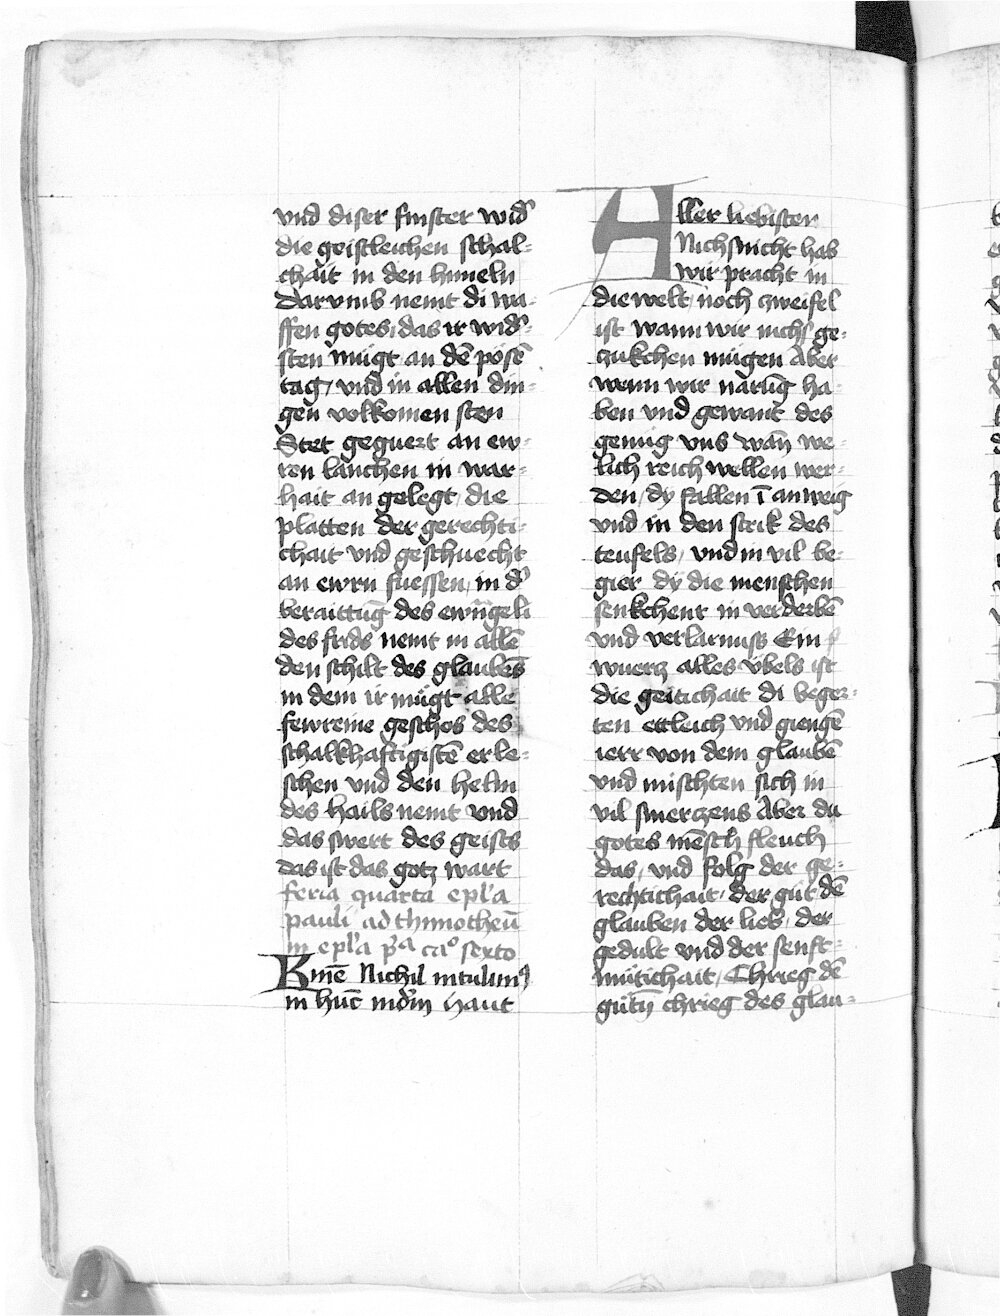 vnd diser finster wid᷑
die geistleichen schal-
chait in den himeln
Darvmb nemt di wa-
ffen gotes das ir wid᷑-
sten mügt an dē pösē
tag / vnd in allen din-
gen volkomen sten
Stet geguert an ew-
ren lanchen in war-
hait an gelegt / die
platten der gerechti-
chait vnd geschuecht
an ewrn fuessen / in d᷑
beraittūg des ewāgeli
des frids nemt in allē
den schilt des glaubēs
in dem ir mügt alle
fewreine geschos des
schalkhaftigistē erle-
schen vnd den helm
des hails nemt vnd
das swert des geists
das ist das gotz wart
feria quarta epl'a
pauli ad thimotheū
in epl'a p̄ᵃ caᵒ sexto
Kmē Nichil intulimꝰ
in hūc mūdm haut
Aller liebisten
Nichsnicht hab
wir pracht in
die welt / noch zweifel
ist wann wir nichs ge-
zukchen mügen Aber
wenn wir narūg ha-
ben vnd gewant des
genüg vns wan̄ we-
lich reich wellen wer-
den / dy fallen ī anweig
vnd in den strik des
teufels / vnd in vil be-
gier dÿ die menschen
senkchent in verderbē
vnd verlarnuss Ein
wuercz alles übels ist
die geitichait di beger-
ten ettleich vnd giengē
ierr von dem glaubē
vnd mischten sich in
vil smerczens Aber du
gotes mēsch fleuch
das / vnd folg der ge-
rechtichait / der güt dē
glauben der lieb / der
gedult vnd der senft-
mütichait / Chrieg dē
gütn̄ chrieg des glau-